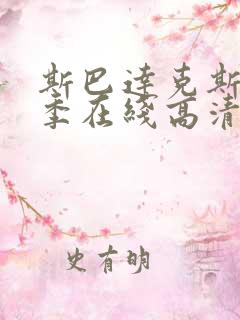 斯巴达克斯
季在綫高清
史有明